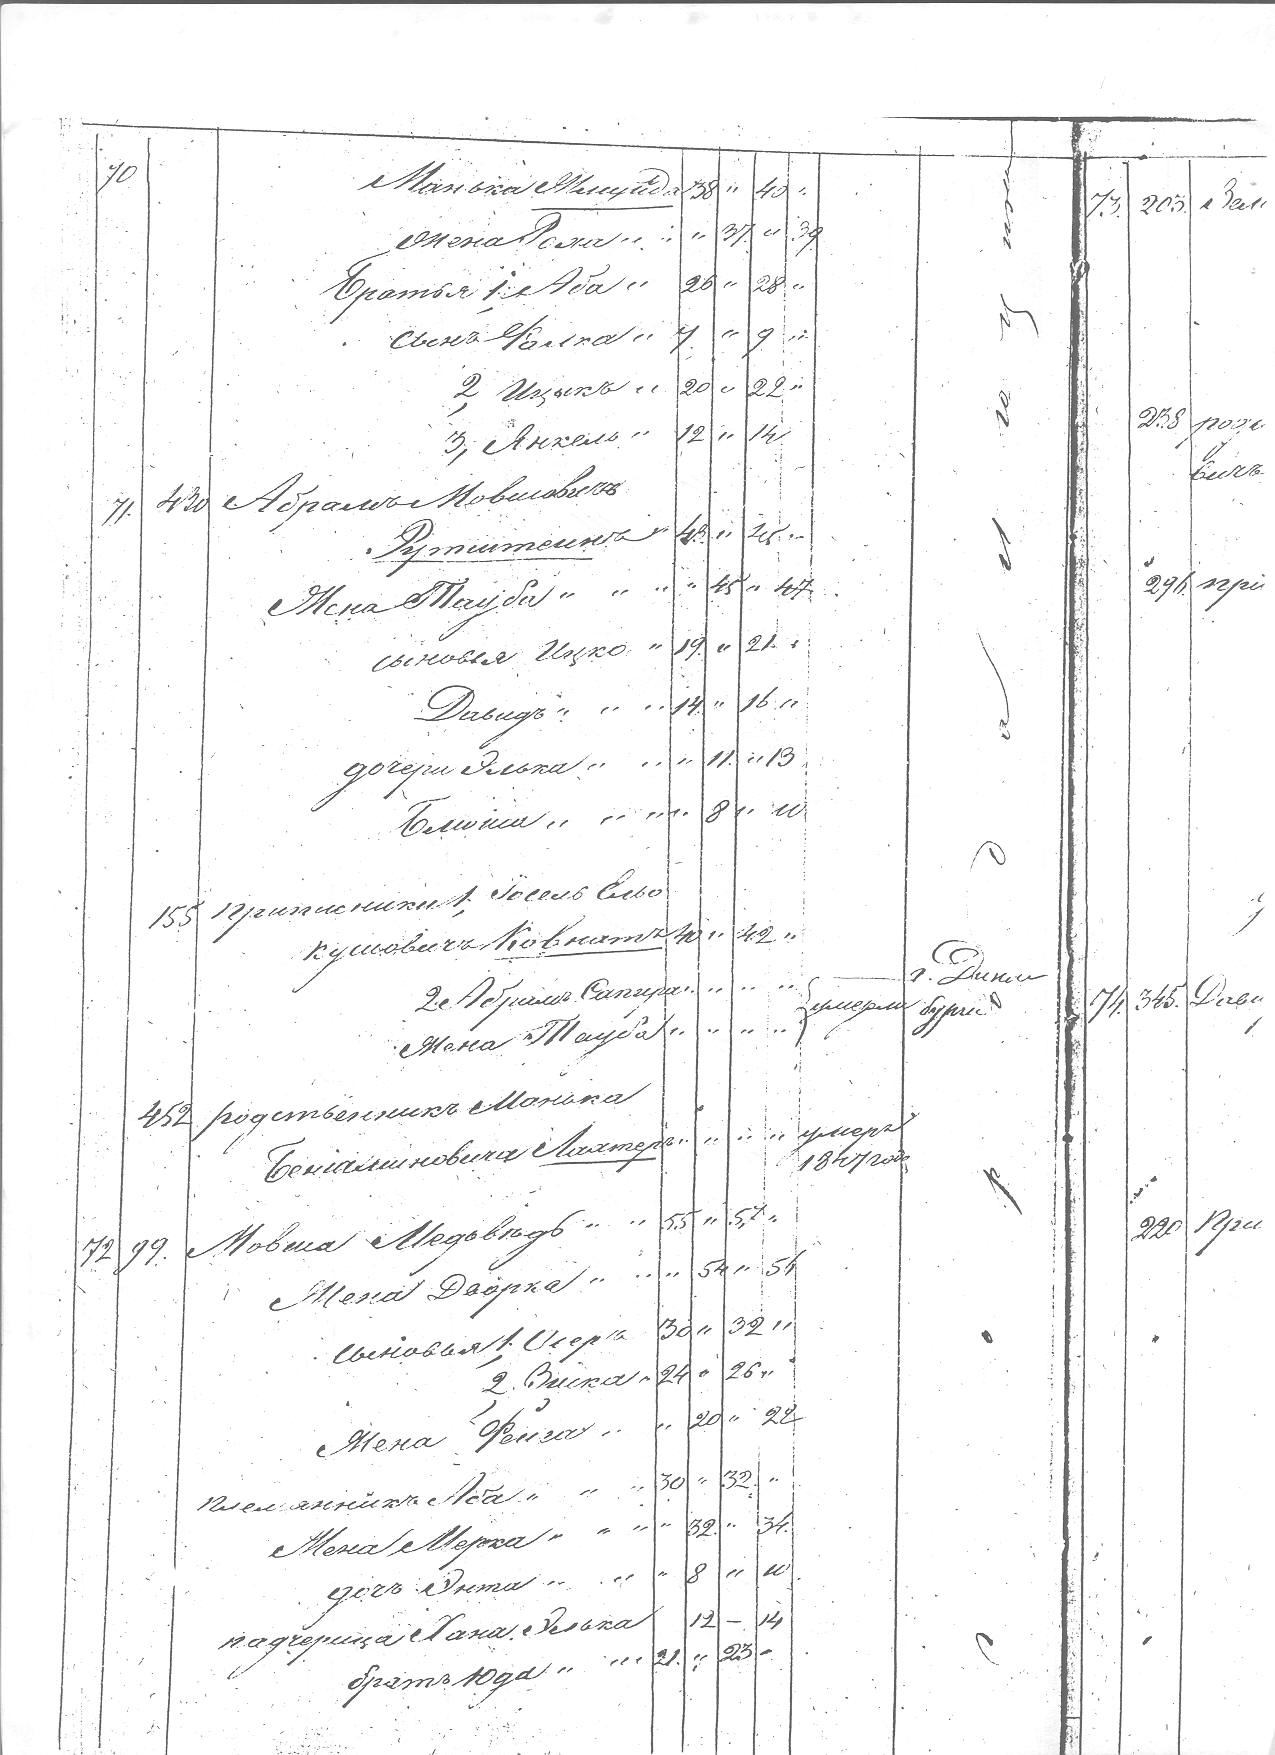 70 Манька 38 " 40 "
жена Роха " " " 37 " 39
Братья 1, Аба " 26 " 28 "
сынъ Фалка " 7 " 9 "
2, Ицыкъ " 20 " 22 "
3, Янкель " 12 " 14
71. 430 Абрамъ Мовшовичъ
Рутштеинъ " 43 " 45 "
Жена Тауба " " " " 45 " 47
сыновья Ицко " 19 " 21 "
Давидъ " " " 14 " 16 "
дочери Элька " " " 11 " 13
Блюма " " " " 8 " 10
155 приписники 1, Іосель Ельо
кушовичъ Ковнатъ 40 " 42 "
2, Абрамъ Сапира " " " " умерли г. Дина
бургѣ
Жена Тауба " " " "
452 родственникъ Манька
Беніаминовича Лахтеръ " " " " умеръ
1847 год
72 99. Мовша Медьвѣдь " " 55 " 57 "
Жена Дворка " " " 54 " 54
сыновья 1. Осеръ 30 " 32 "
2, Зиска " 24 " 26 "
Жена Фейга " " 20 " 22
племянникъ Аба " " " 30 " 32 "
Жена Мерка " " " " 32 " 34
дочь Энта " " " 8 " 10
падчерица Хана Элька 12 – 14
братъ Юда " " 21 " 23 "
73. 203.
238
вичъ
296 при
74. 345. Дави
220 При